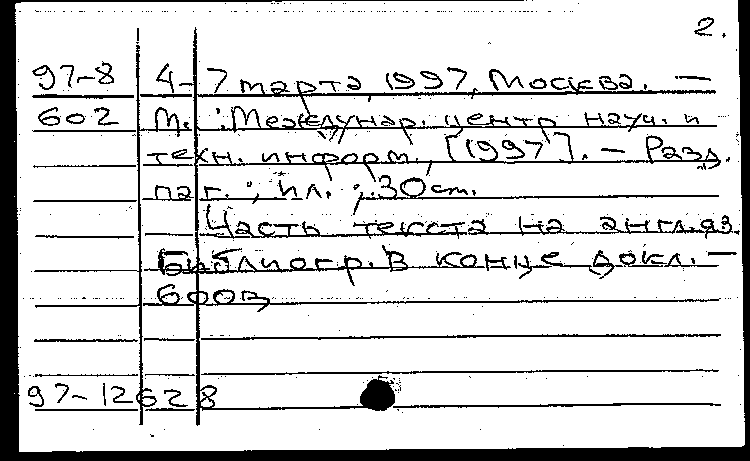 2.
97-8 4-7 марта 1997, Москва. —
602 М. : Междунар. центр науч. и
техн. информ., [1997]. - Разд.
паг. ; ил. ; 30 cm.
Часть текста на англ. яз.
Библиогр. в конце докл. —
600
97-12628